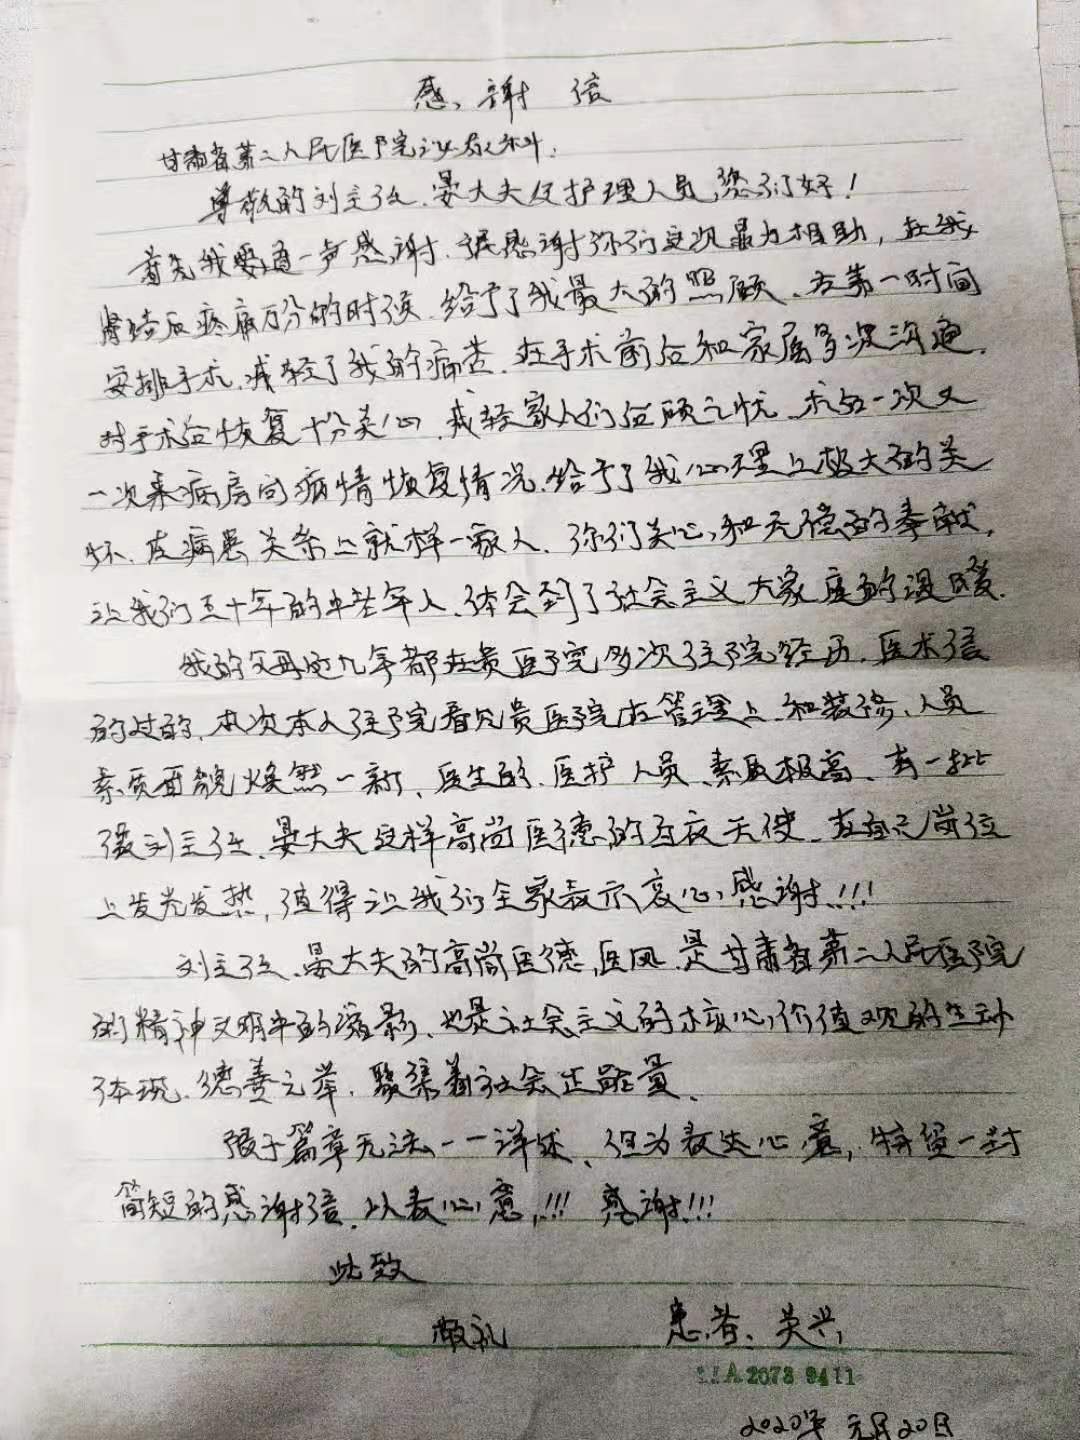 感谢信
甘肃省第二人民医院泌尿科：
尊敬的刘主任、晏大夫及护理人员，您们好！
首先我要道一声感谢、很感谢你们这次鼎力相助，在我
肾结石疼痛万分的时候、给予了我最大的照顾、在第一时间
安排手术、减轻了我的痛苦、在手术前后和家属多次沟通、
对手术后恢复十分关心、减轻家人们后顾之忧、术后一次又
一次来病房问病情恢复情况、给予了我心理上极大的关
怀、医病患关系上就样一家人、你们关心和无偿的奉献、
让我们五十年的中老年人、体会到了社会主义大家庭的温暖、
我的父母近九年都在贵医院多次住院经历、医术信
的过的、本次本人住院看见贵医院在管理上、和装修、人员
素质面貌焕然一新、医生的、医护人员、素质极高、有一批
像刘主任、晏大夫这样高尚医德的白衣天使、在自己岗位
上发光发热，值得让我们全家表示衷心感谢!!!
刘主任、晏大夫的高尚医德，医风、是甘肃省第二人民医院
的精神文明中的缩影、也是社会主义的核心价值观的生动
体现、德善之举、聚集着社会正能量、
限于篇章无法一一详述、但为表达心意，特留一封
简短的感谢信、以表心意，!!! 感谢!!!
此致
敬礼 患者：英兴
A 2073 9411
2020年元月20日